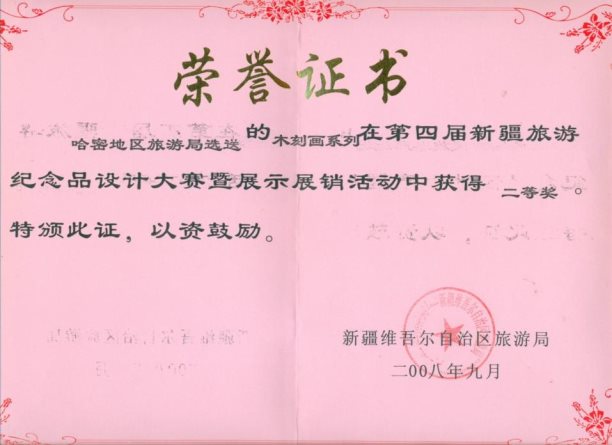 荣誉证书
哈密地区旅游局选送的木刻画系列在第四届新疆旅游
纪念品设计大赛暨展示展销活动中获得 二等奖 。
特颁此证，以资鼓励。
新疆维吾尔自治区旅游局
二00八年九月